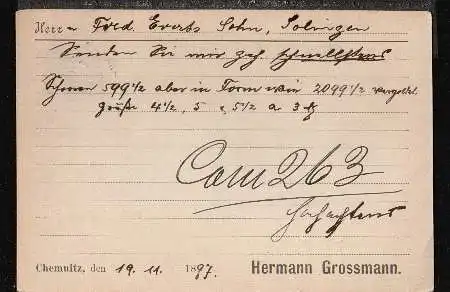 Herrn Fred. Everts Sohn, Solingen
Senden Sie mir gefl. schnellstens
Scheren 599 1/2 aber in Form wie 2099 1/2 vergoldet
größe 4 1/2, 5, 5 1/2 a 3
Com 263
Chemnitz, den 19. 11. 1897. Hermann Grossmann.